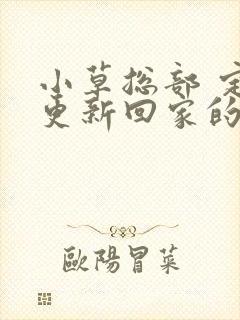 小草总部 定
更新回家的
歐陽冒菜